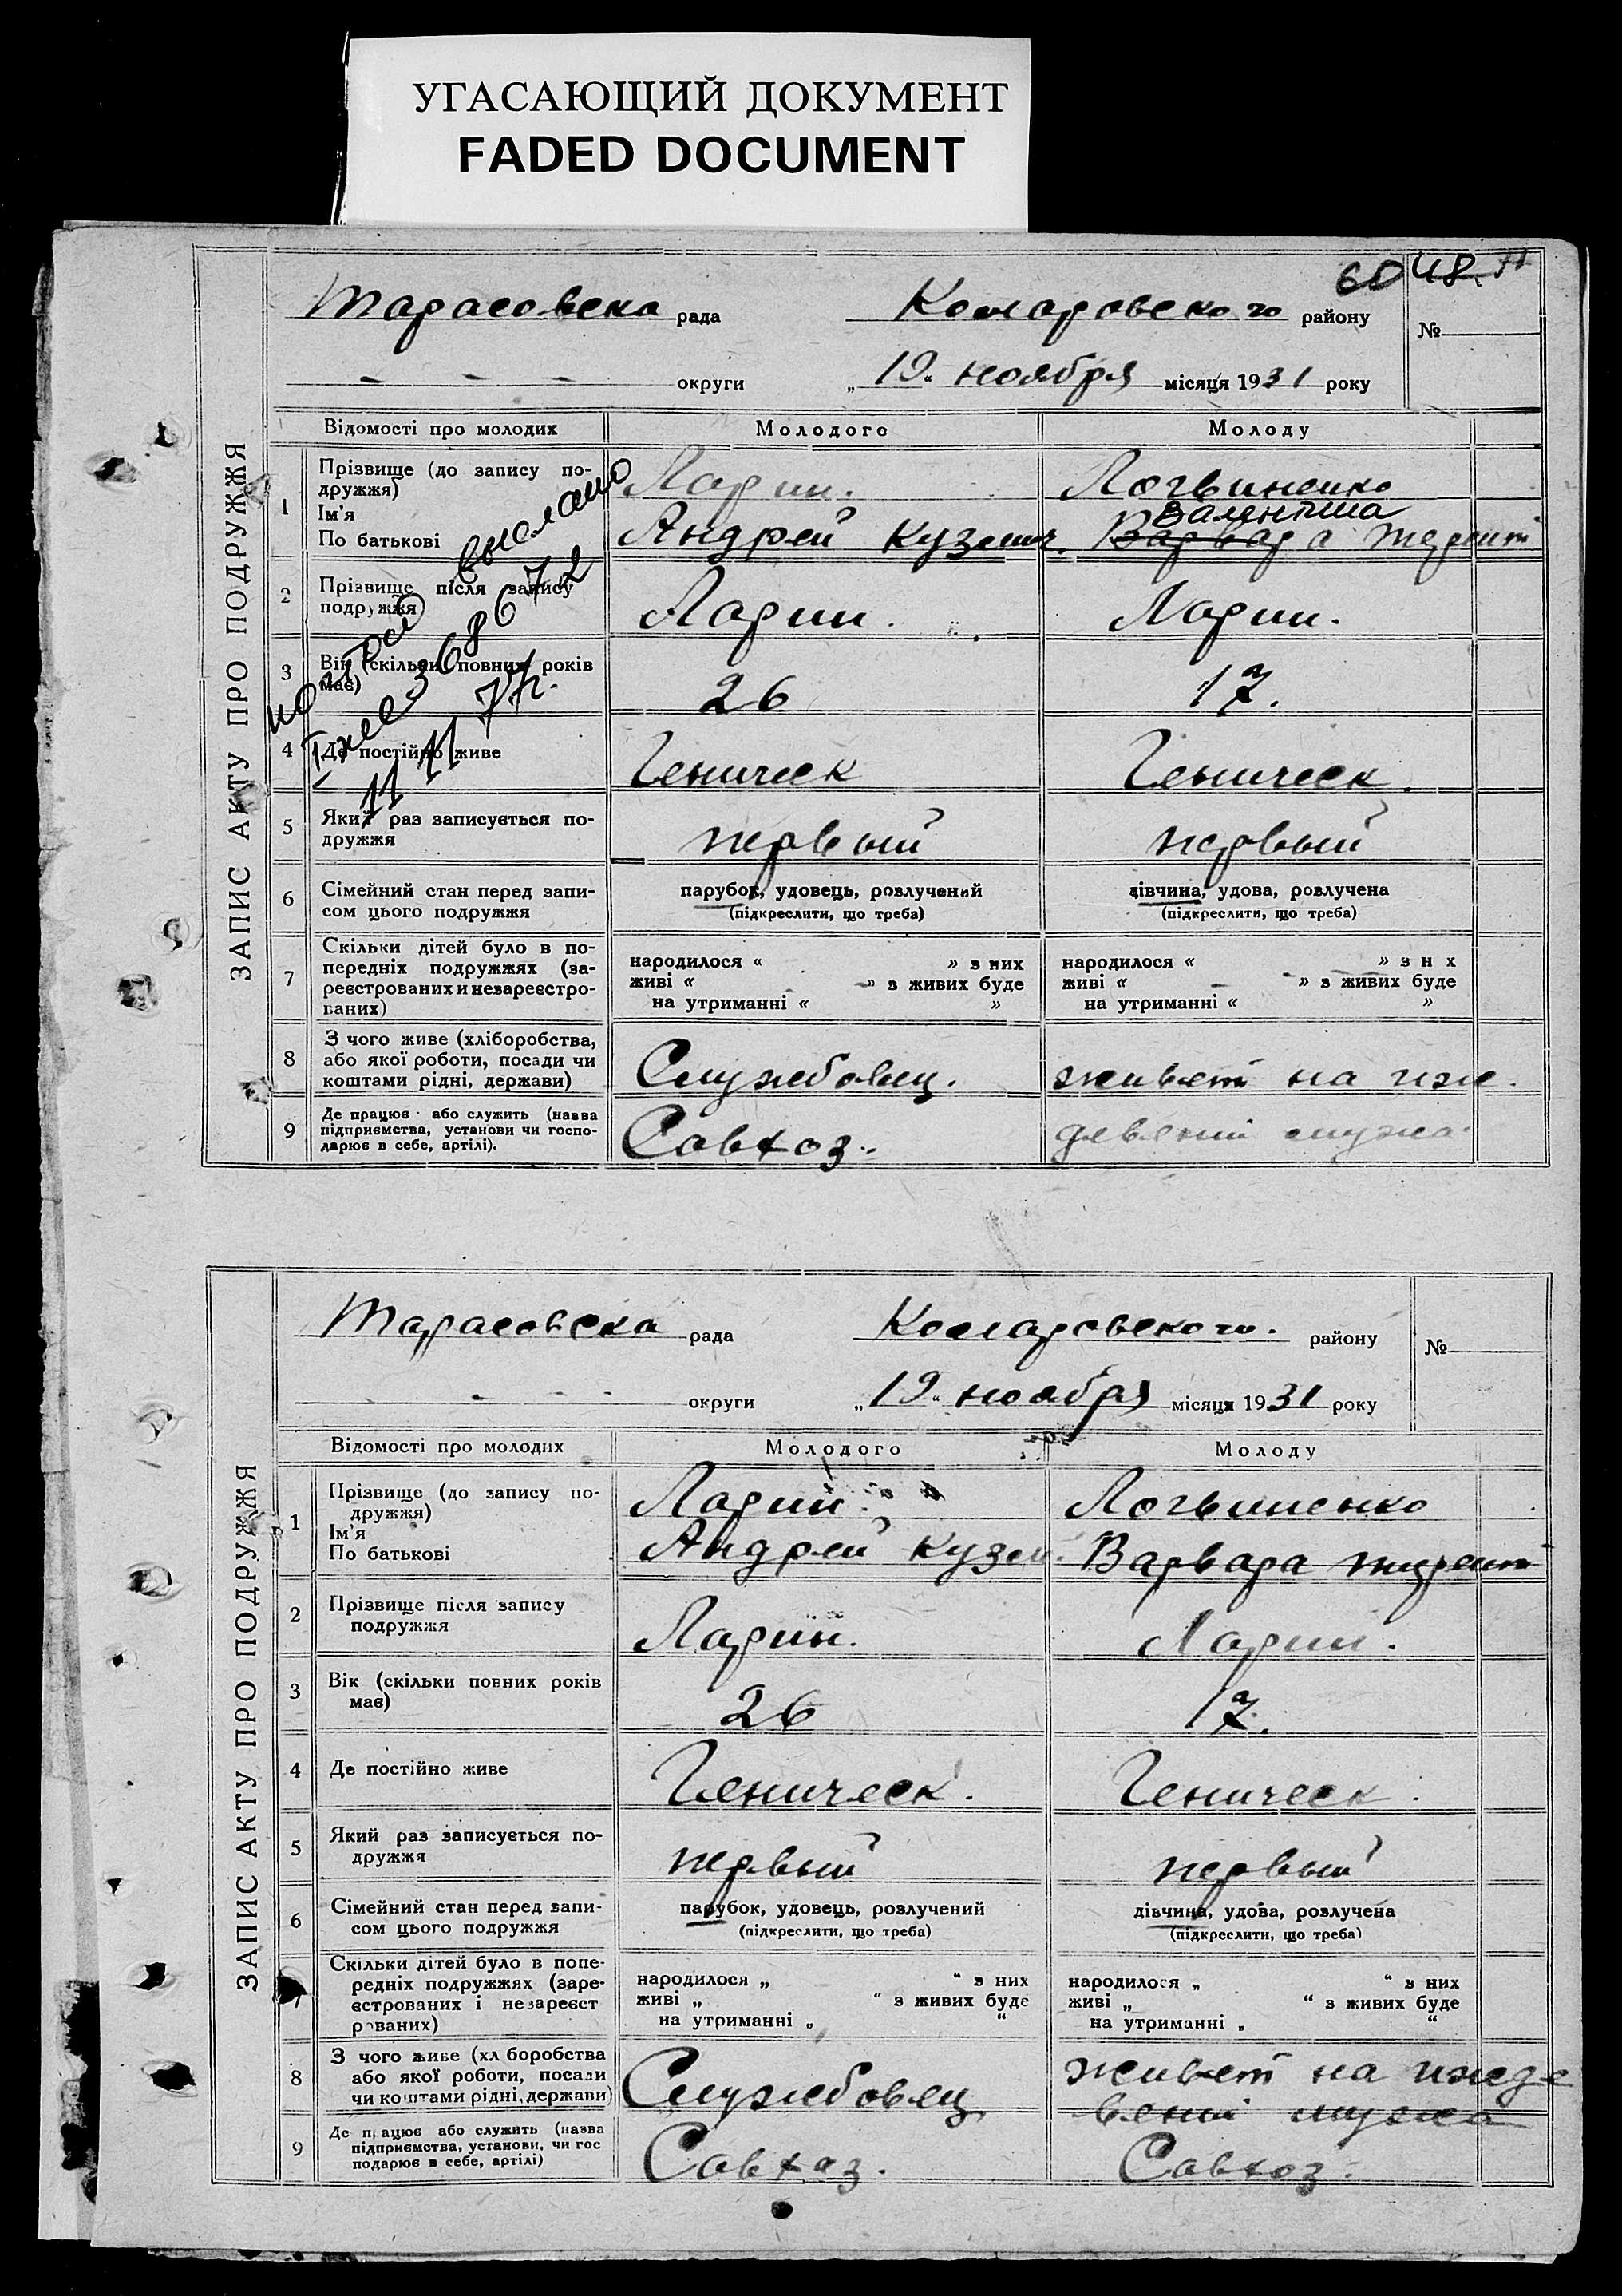 УГАСАЮЩИЙ ДОКУМЕНТ
FADED DOCUMENT
60 48
ЗАПИС АКТУ ПРО ПОДРУЖЖЯ
Тарасовска рада Комаровского району №
округи „19“ ноября місяця 1931 року
Відомості про молодих Молодого Молоду
1 Прізвище (до запису по-
дружжя)
Ім'я
По батькові
Ларин. Логвиненко
Валентина
Андрей Кузмич. Варвара Терент
2 Прізвище після запису
подружжя
Ларин. Ларин.
3 Вік (скільки повних років
має)
26 17.
4 Де постійно живе Геническ Геническ.
5 Який раз записується по-
дружжя
первый первый
6 Сімейний стан перед запи-
сом цього подружжя
парубок, удовець, розлучений дівчина, удова, розлучена
(підкреслити, що треба) (підкреслити, що треба)
7 Скільки дітей було в по-
передніх подружжях (за-
реєстрованих и незареєстро-
ваних)
народилося “ » з них народилося “ » з н х
живі “ » з живих буде живі “ » з живих буде
на утриманні “ » на утриманні “ »
8 З чого живе (хліборобства,
або якої роботи, посади чи
коштами рідні, держави)
Службовец. живет на иж.
9 Де працює або служить (назва
підприємства, установи чи госпо-
дарює в себе, артілі).
Совхоз. девении мужа.
повтор выслано
I жс 368672
11 11 77г.
ЗАПИС АКТУ ПРО ПОДРУЖЖЯ
Тарасовска рада Комаровского. району №
округи „19“ ноября місяця 1931 року
Відомості про молодих Молодого Молоду
1 Прізвище (до запису по-
дружжя)
Ім'я
По батькові
Ларин. Логвиненко
Андрей Кузм. Варвара Терент
2 Прізвище після запису
подружжя
Ларин. Ларин.
3 Вік (скільки повних років
має)
26 17.
4 Де постійно живе Геническ. Геническ.
5 Який раз записується по-
дружжя
первый первый
6 Сімейний стан перед запи-
сом цього подружжя
парубок, удовець, розлучений дівчина, удова, розлучена
(підкреслити, що треба) (підкреслити, що треба)
7 Скільки дітей було в попе-
редніх подружжях (заре-
єстрованих і незареєст
рованих)
народилося „ “ з них народилося „ “ з них
живі „ “ з живих буде живі „ “ з живих буде
на утриманні „ “ на утриманні „ “
8 З чого живе (хл боробства
або якої роботи, посади
чи коштами рідні, держави)
Службовец живет на ижде
вении мужа
9 Де працює або служить (назва
підприємства, установи, чи гос
подарює в себе, артілі)
Совхоз. Совхоз.